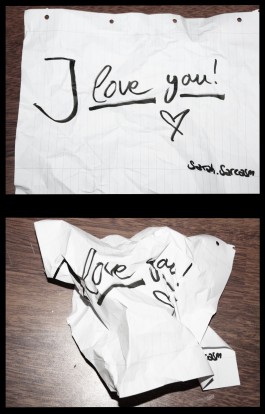 I love you!
Sarah.Sarcasm
love you!
casm